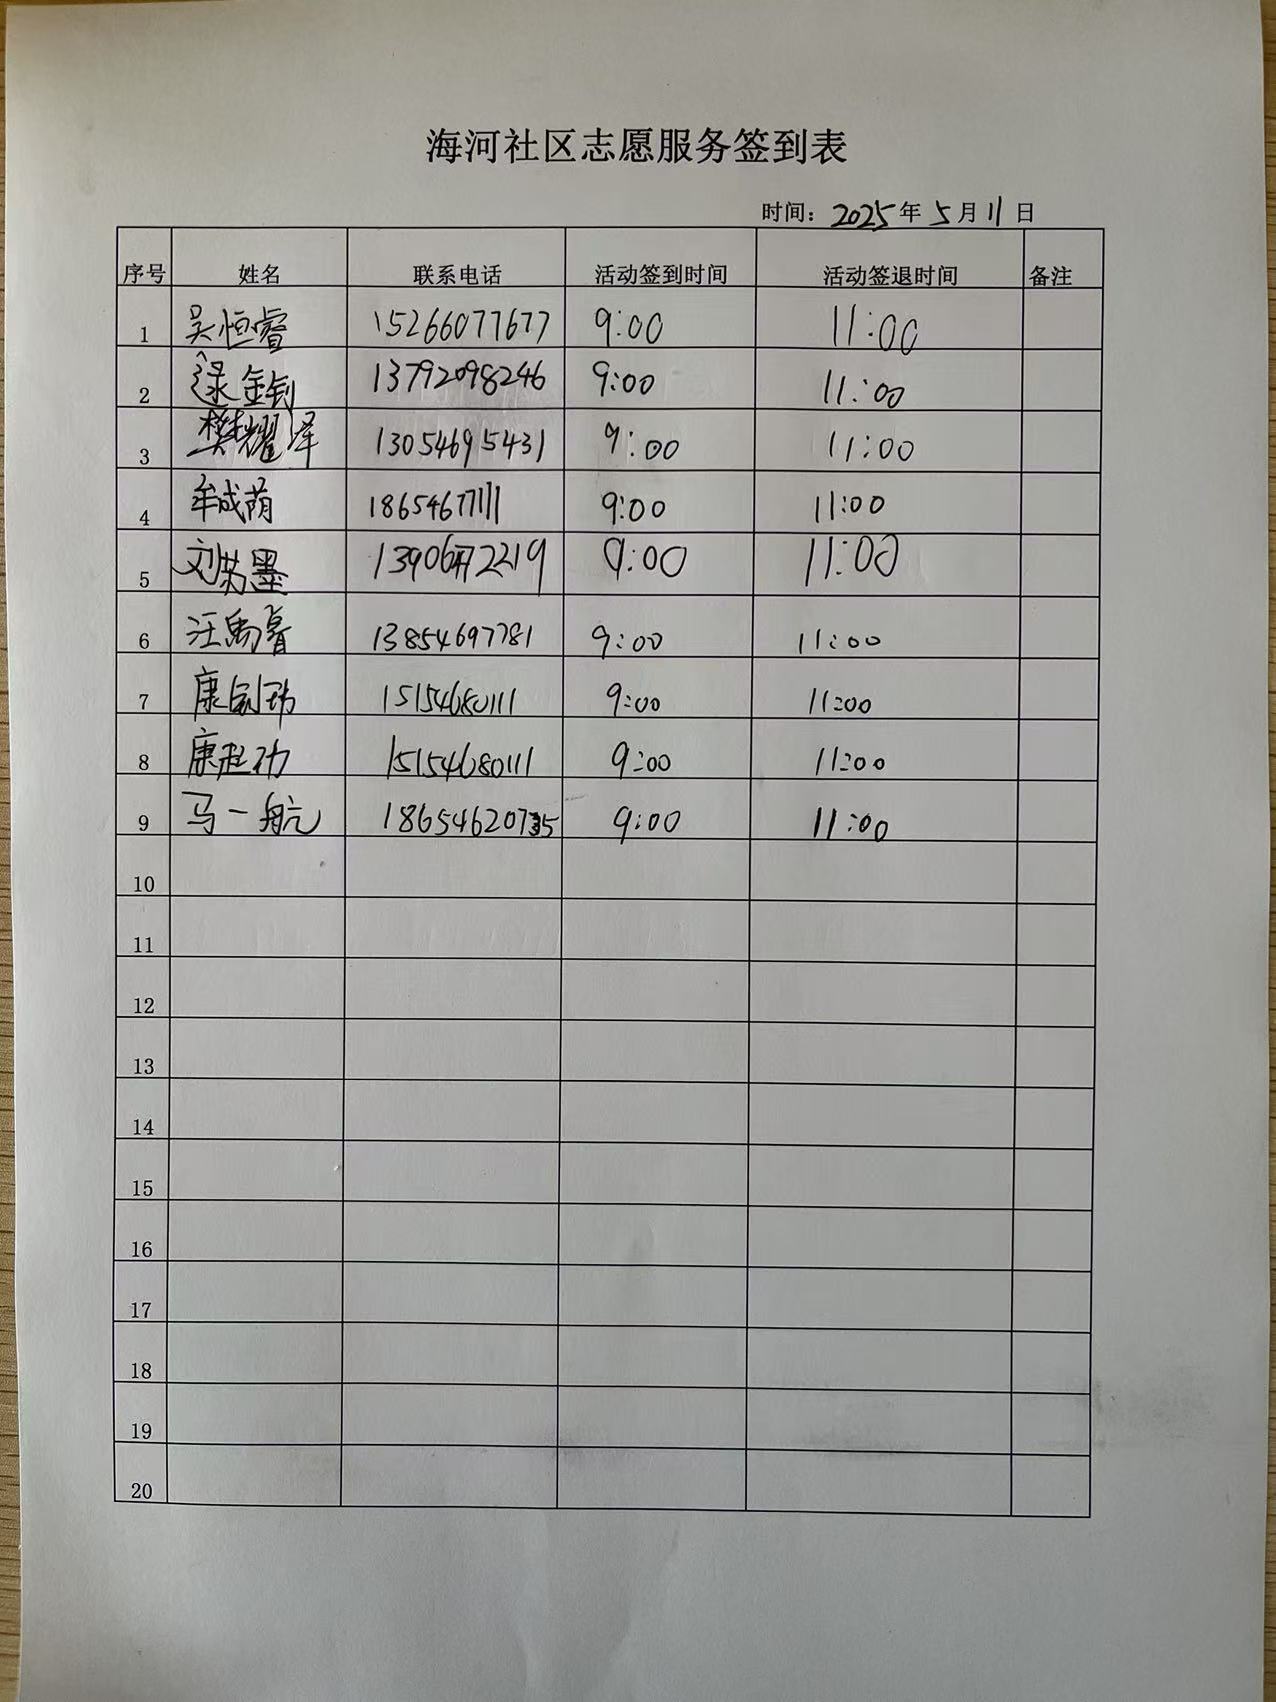 海河社区志愿服务签到表
时间：2025年5月11日
序号 姓名 联系电话 活动签到时间 活动签退时间 备注
1 吴恒睿 15266077677 9:00 11:00
2 逯金钊 13792098246 9:00 11:00
3 樊耀泽 13054695431 9:00 11:00
4 牟成荫 18654677111 9:00 11:00
5 刘芮墨 9:00 11:00
6 汪禹睿 13854697781 9:00 11:00
7 康 15154680111 9:00 11:00
8 康起功 15154680111 9:00 11:00
9 马一航 18654620735 9:00 11:00
10
11
12
13
14
15
16
17
18
19
20